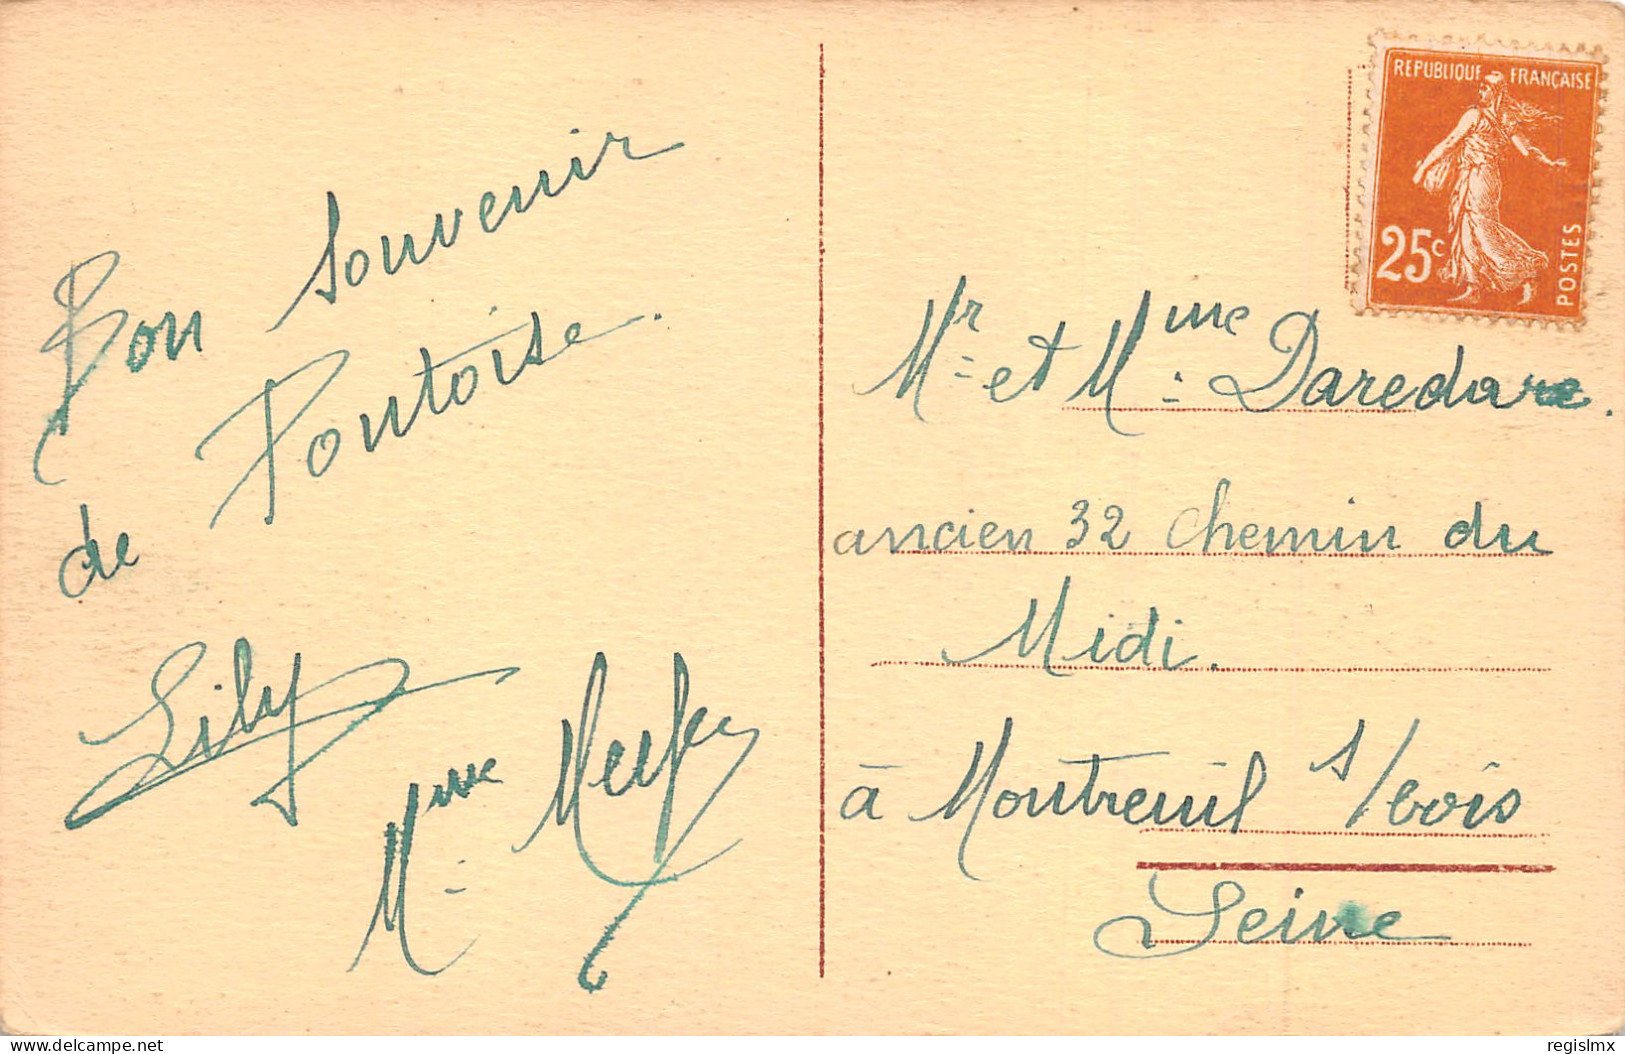 Bon souvenir
de Pontoise.
Lily
Mme
REPUBLIQUE FRANÇAISE
25c
POSTES
Mr et Mme
ancien 32 chemin du
Midi.
à Montreuil s/bois
Seine
delcampe.net
regislmx